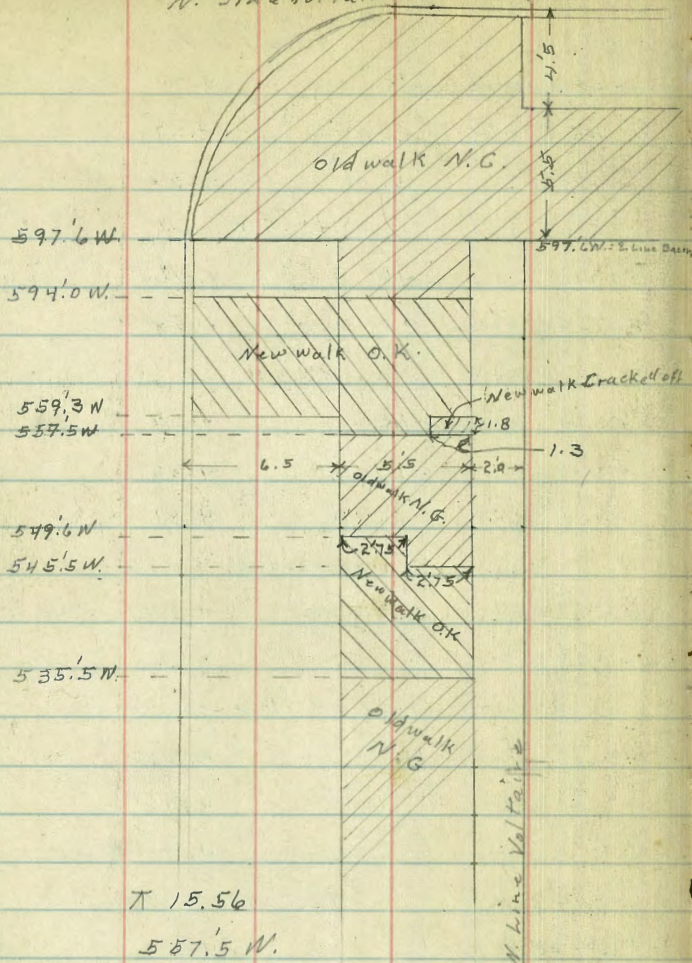 4.'5
5.'5
Old walk N.G.
597.'6 W.
597.'6 W. = E. Line
594.'0 W.
New walk O.K.
New walk Cracked off
559.'3 W
1.8
557.'5 W
1.3
6.5
5.'5
2.'0
Old walk N.G.
549.'6 W
2.'75
545.'5 W.
2.'75
New Walk O.K
535.'5 W.
Old walk
N.G
N. Line Voltaire
⊼ 15.56
557.'5 W.